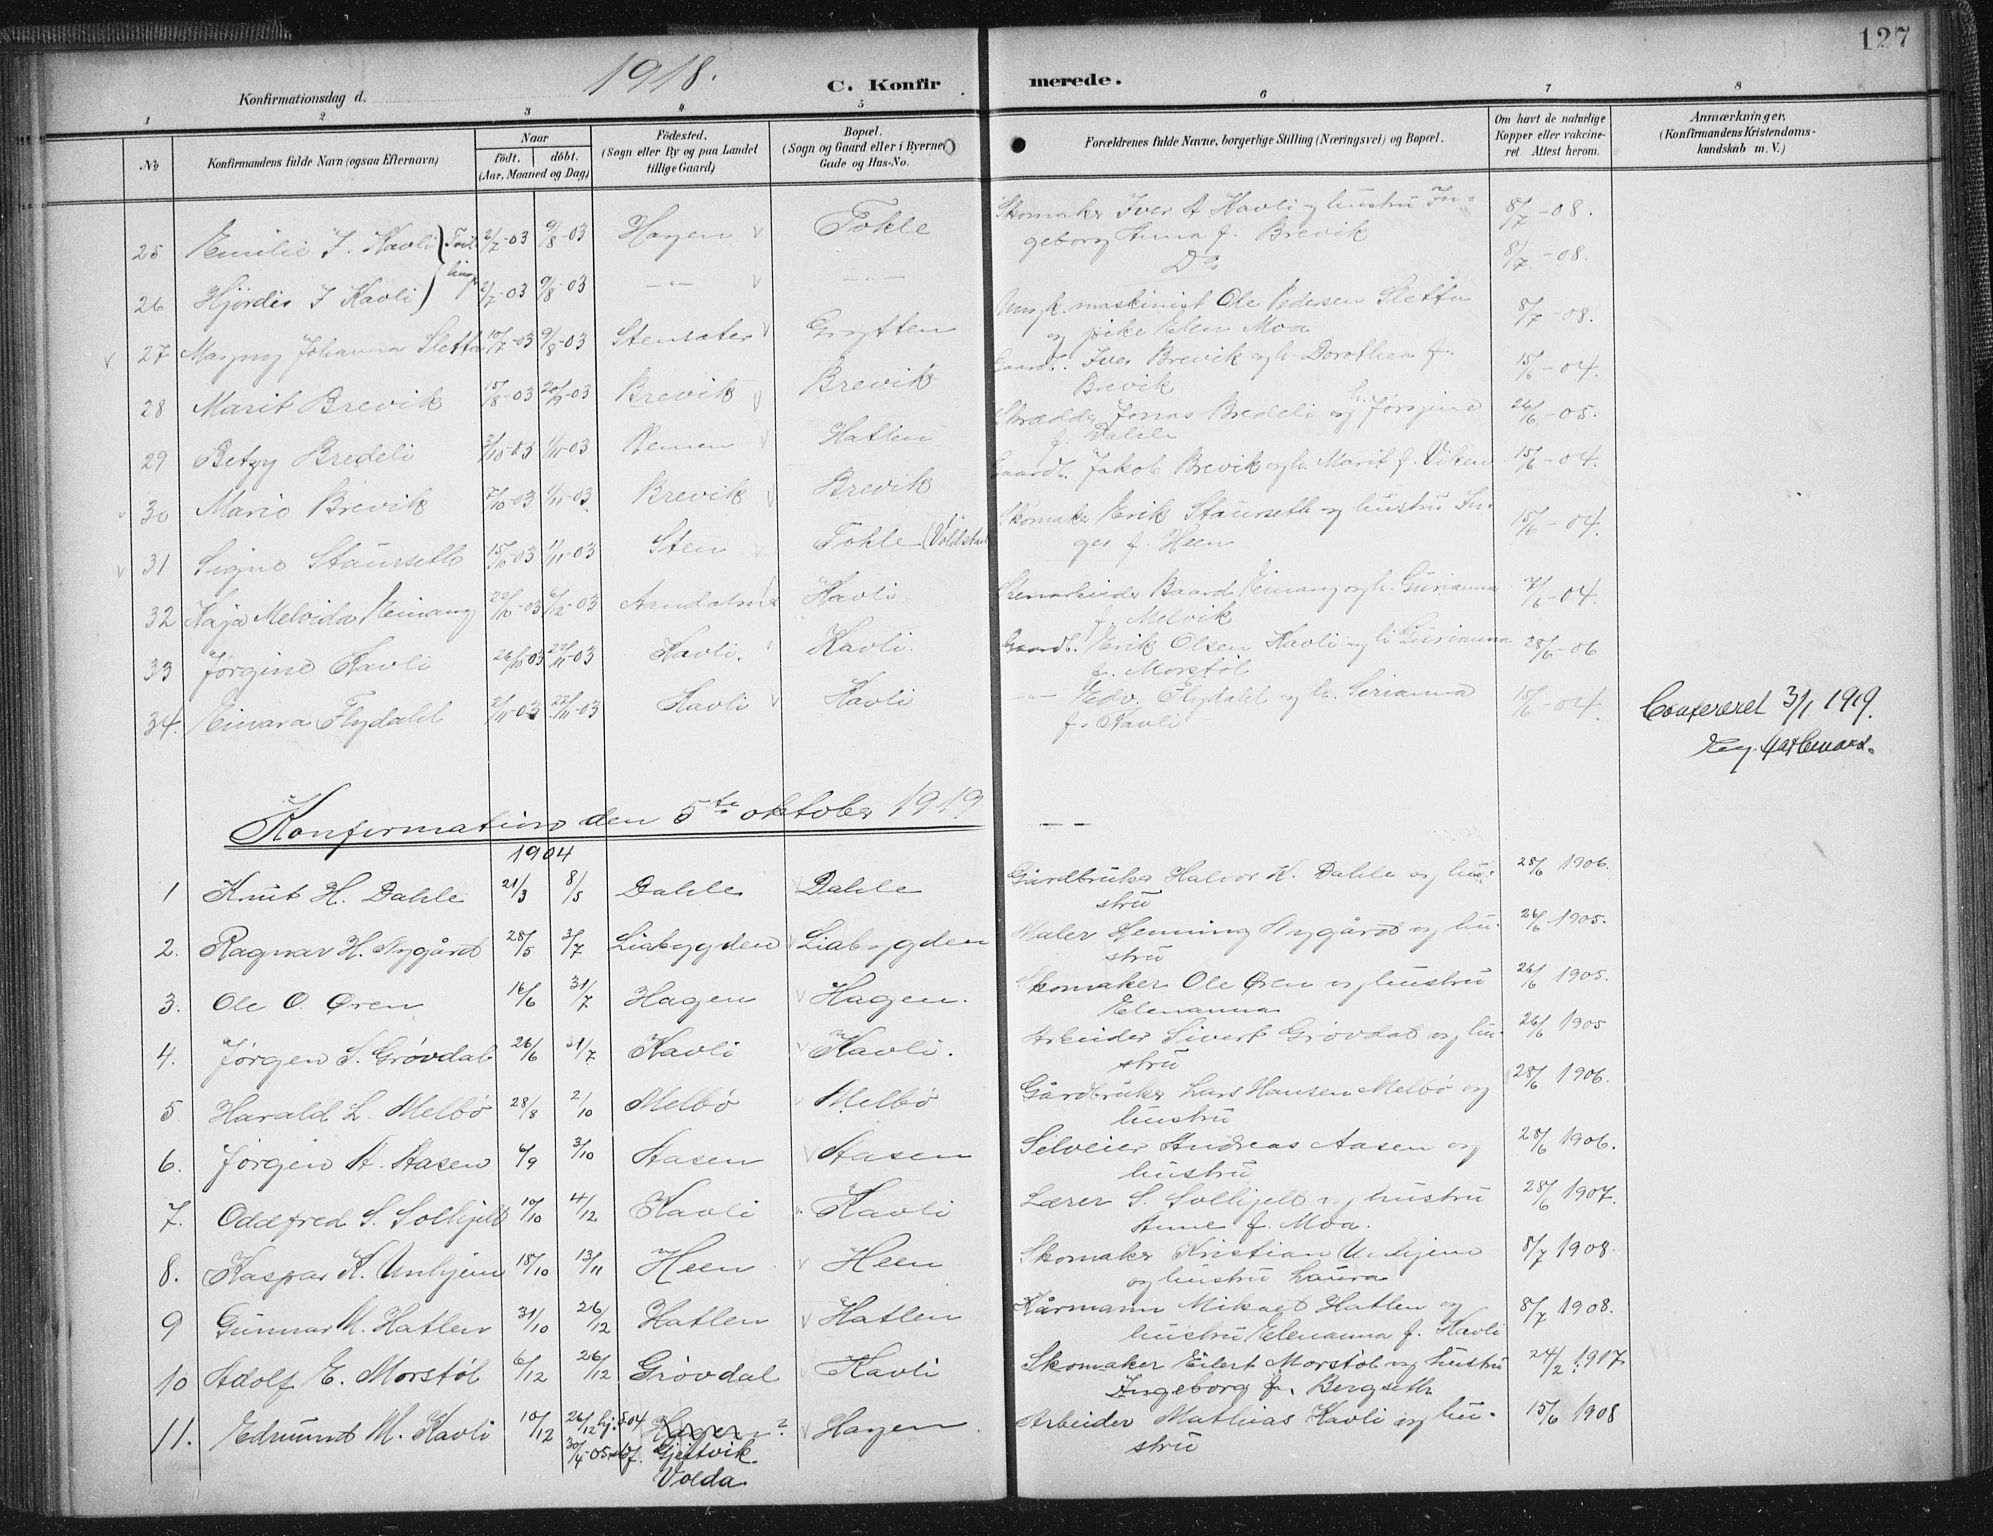 127
1918.
Konfirmationsdag d.
C. Konfir
merede.
1 2 3 4. 5 6 7 8
No
Konfirmandens fulde Navn (ogsaa Efternavn)
Naar
födt. döbt.
(Aar, Maaned og Dag)
Födested.
(Sogn eller By og paa Landet
tillige Gaard)
Bopæl.
(Sogn og Gaard eller i Byerne
Gade og Hus-No.
Forældrenes fulde Navne, borgerlige Stilling (Næringsvei) og Bopæl.
Om havt de naturlige
Kopper eller vakcine-
ret. Attest herom.
Anmærkninger,
(Konfirmandens Kristendoms-
kundskab m. V.)
25 Emilie I. Kavli 2/7-03 9/8-03 Hagen Tokle Skomaker Iver A Kavli og hustru In-
geborg Anna f. Brevik 8/7-08.
26 Hjørdis I Kavli 2/7-03 9/8-03 -"- -"- Do 8/7-08.
27 Magny Johanna Sletta 10/7-03 9/8-03 Stensæter Grytten Ungk. maskinist Ole Pedersen Sletta
og pike Elen Moa 8/7-08.
28 Marit Brevik 15/8-03 20/9-03 Brevik Brevik Gaardb. Iver Brevik og h. Dorothea f.
Brevik 15/6-04.
29 Betzy Bredeli 3/10-03 1/11-03 Remen Hatlen Skrædder Jonas Bredeli og h. Jørgine
f. Dahle 26/6-05.
30 Marie Brevik 7/10-03 1/11-03. Brevik Brevik Gaardb. Jakob Brevik og h. Marit f. Viken 15/6-04.
31 Signe Staurseth 15/10-03 1/11-03 Sten Tokle (Voldstad Skomaker Erik Staurseth og hustru In-
ger f. Heen 15/6-04.
32 Kaja Melvida Einang 22/10-03 6/12-03 Aandalsnes Kavli Stenarbeider Baard Einang og h. Gurianna
f. Melvik 7/6-04.
33 Jørgine Kavli 26/10-03 22/11-03 Kavli. Kavli. Gaardb. Erik Olsen Kavli og h Gurianna
f. Morstöl 28/6-06
34. Einara Flydahl 2/11-03 22/11-03 Kavli Kavli -"- Edv. Flydahl og h. Serianna
f. Kavli 15/6-04. Confereret 3/1 1919.
Konfirmation den 5te oktober 1919
1904
1 Knut H. Dahle 21/3 8/5 Dahle Dahle Gårdbruker Halvor K. Dahle og hu-
stru 28/6 1906.
2. Ragnar H. Nygård 28/5 3/7 Liabygden Liabygden Maler Henning Nygård og hu-
stru 26/6 1905.
3. Ole O. Øren 16/6 31/7 Hagen Hagen. Skomaker Ole Øren og hustru
Elenanna 26/6 1905.
4. Jørgen S. Grøvdal 26/6 31/7 Kavli Kavli. Arbeider Sivert Grövdal og hu-
stru 26/6 1905
5 Harald L. Melbö 28/8 2/10 Melbö Melbö Gårdbruker Lars Hansen Melbö og
hustru 28/6 1906.
6. Jørgen A. Aasen 6/9 3/10 Aasen Aasen Selveier Andreas Aasen og
hustru 28/6 1906.
7. Oddfred S. Solhjell 10/10 4/12 Kavli Kavli Lærer S. Solhjell og hustru
Anne f. Moa. 28/6 1907.
8. Kaspar K. Unhjem 18/10 13/11 Heen Heen Skomaker Kristian Unhjem
og hustru Laura 8/7 1908.
9 Gunnar M. Hatlen 31/10 26/12 Hatlen Hatlen Kårmann Mikael Hatlen og
hustru Elenanna f. Kavli 8/7 1908.
10 Adolf E. Morstöl 6/12 26/12 Grövdal Kavli Skomaker Eilert Morstöl og hustru
Ingeborg f. Bergseth 24/2 1917
11. Edmund M. Kavli 10/12 26/12 hj. 04 Hagen? Hagen. Arbeider Mathias Kavli og hu-
stru 15/6 1908
30/4-05 stdf. Gjeltvik
Volda